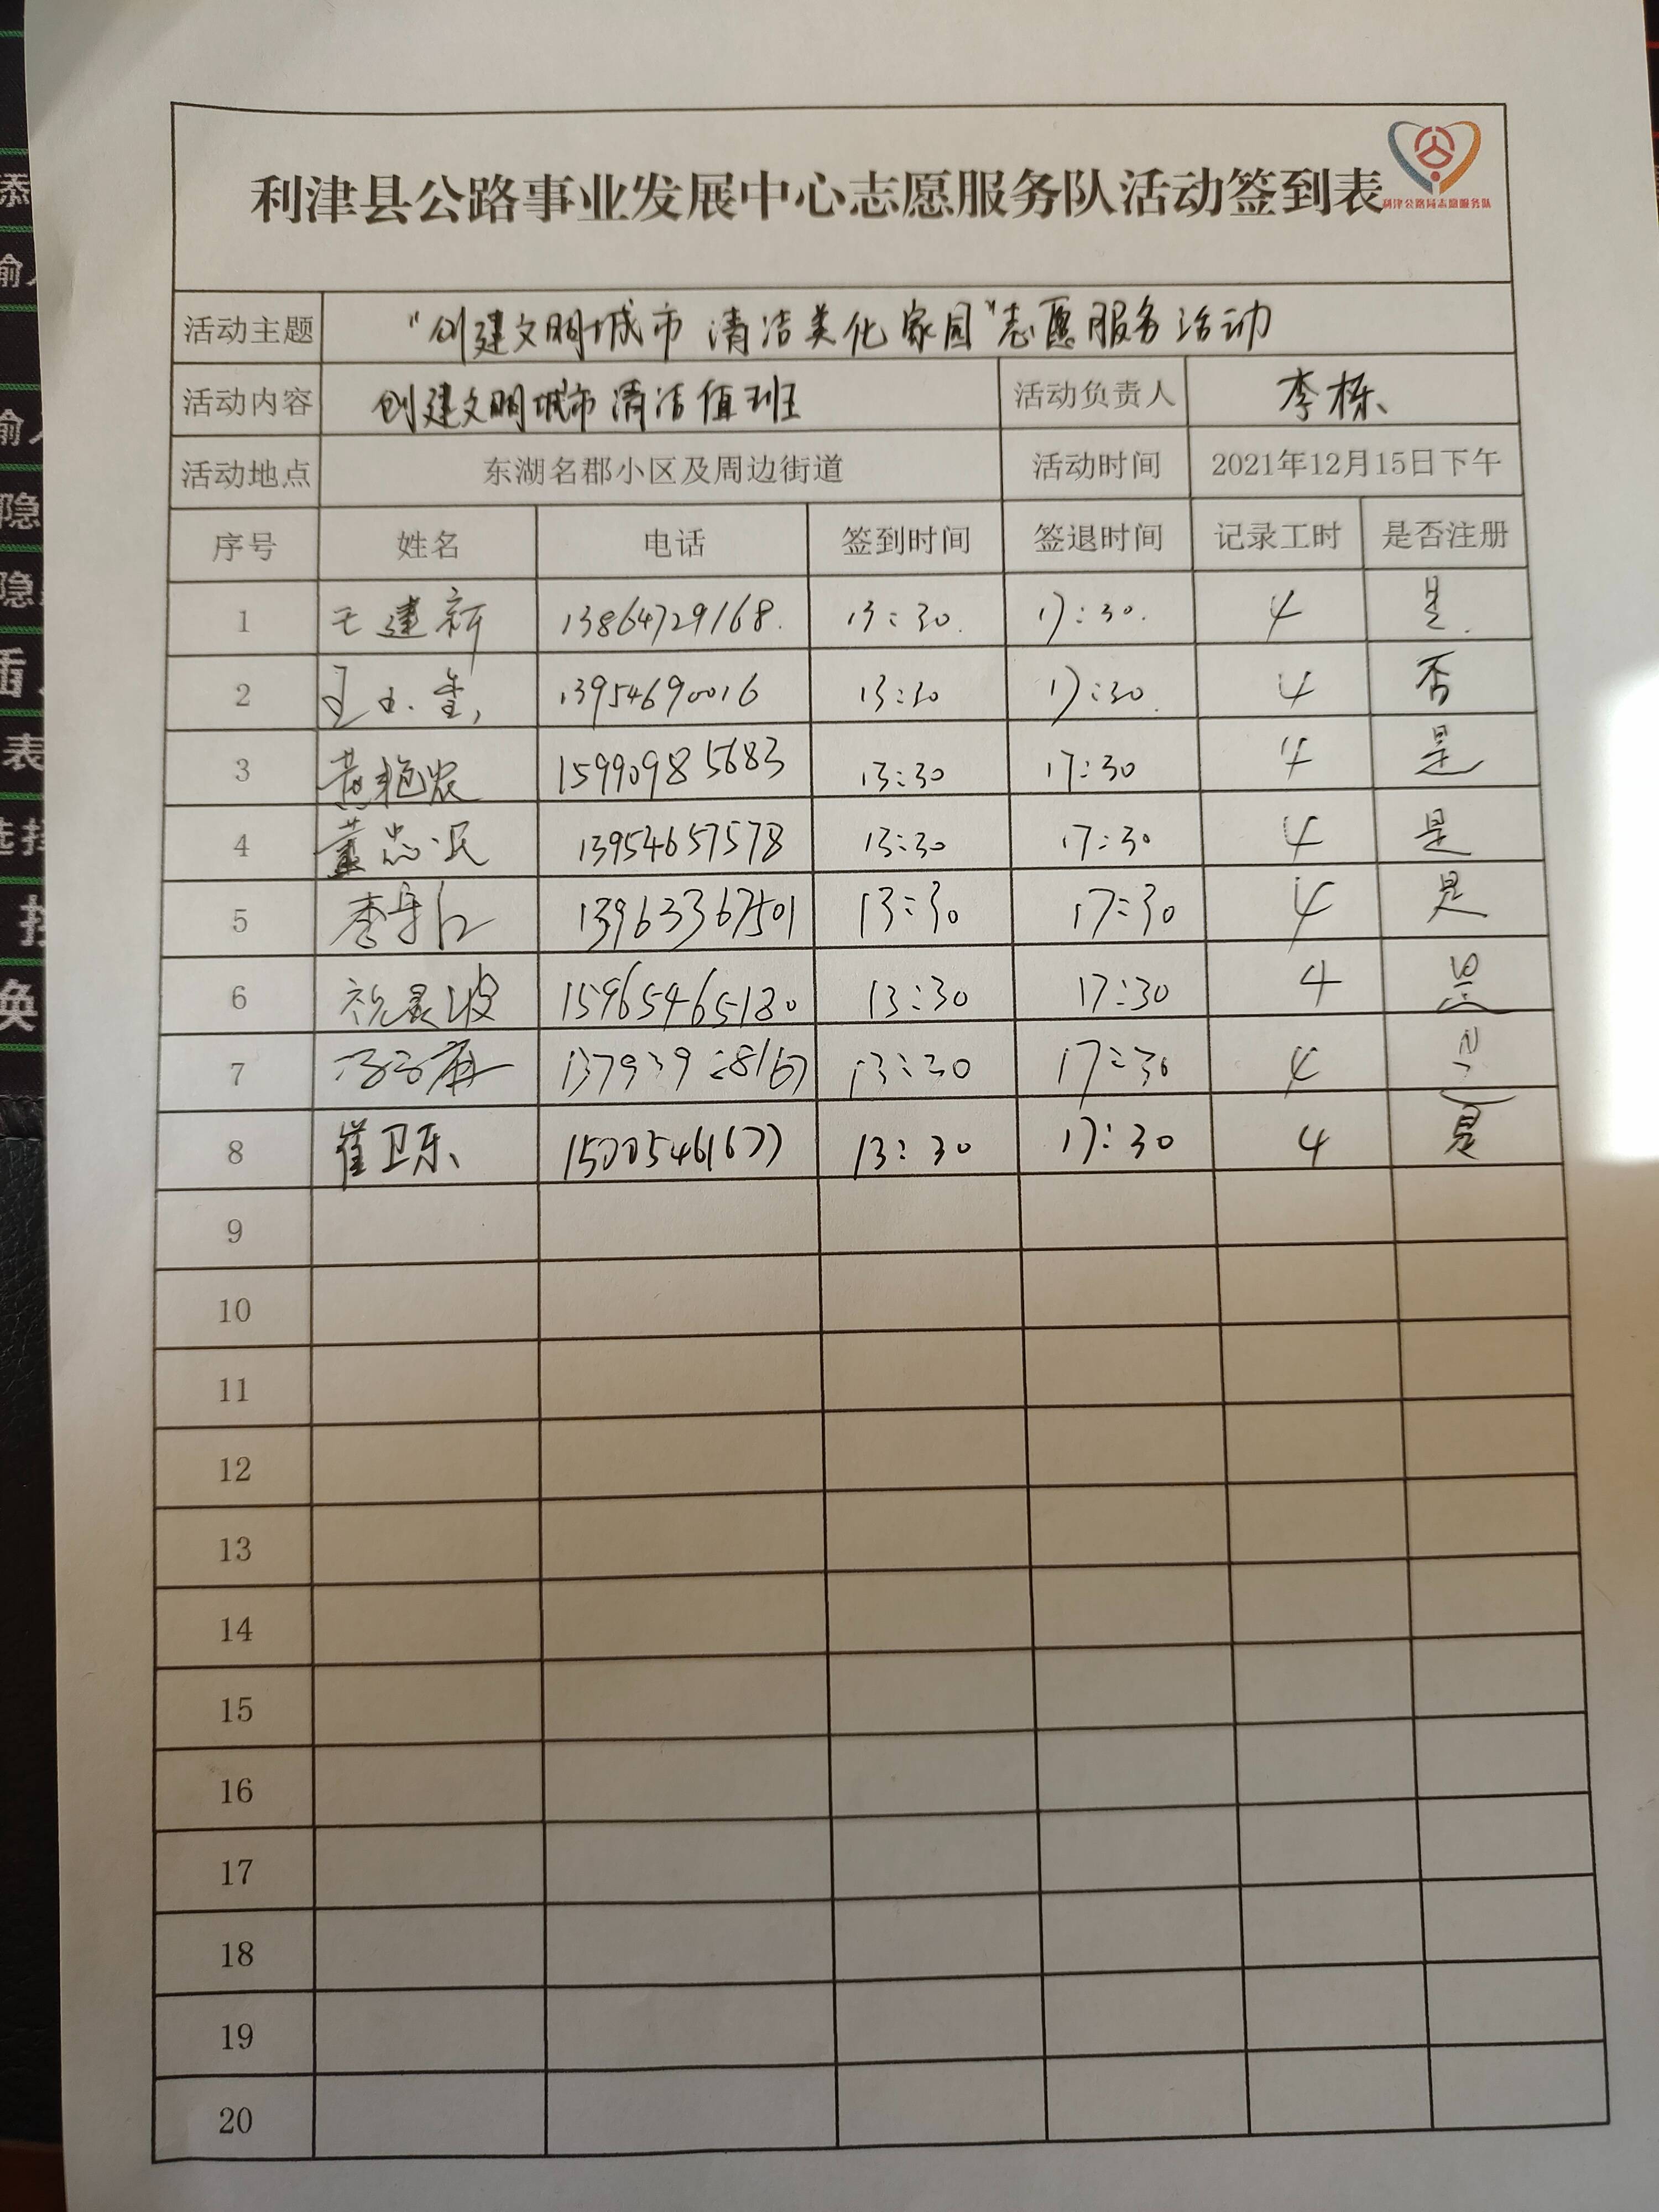 利津县公路事业发展中心志愿服务队活动签到表
利津公路局志愿服务队
活动主题 "创建文明城市 清洁美化家园"志愿服务活动
活动内容 创建文明城市清洁值班 活动负责人 李栋
活动地点 东湖名郡小区及周边街道 活动时间 2021年12月15日下午
序号 姓名 电话 签到时间 签退时间 记录工时 是否注册
1 王建新 13864729168 13:30 17:30 4 是
2 13954690016 13:30 17:30 4 否
3 黄艳农 15990985683 13:30 17:30 4 是
4 董忠民 13954657578 13:30 17:30 4 是
5 13963367501 13:30 17:30 4 是
6 祝景波 15965465180 13:30 17:30 4 是
7 13:30 17:30 4 是
8 崔卫东 13:30 17:30 4 是
9
10
11
12
13
14
15
16
17
18
19
20